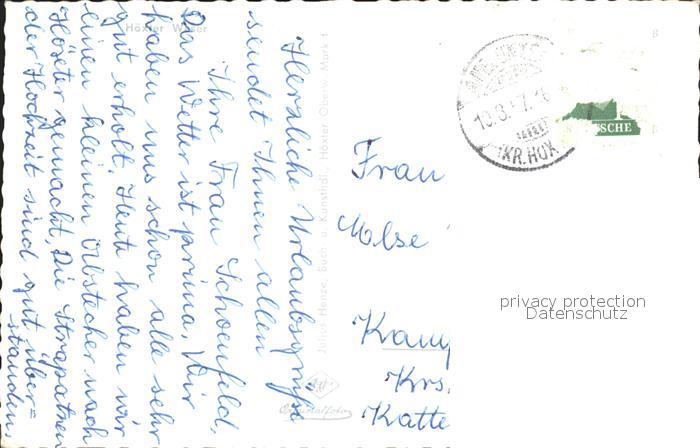 Höxter Weser
Herzliche Urlaubsgrüße
sendet Ihnen allen
Ihre Frau Schoenfeld.
Das Wetter ist prima. Wir
haben uns schon alle sehr
gut erholt. Heute haben wir
einen kleinen Abstecher nach
Höxter gemacht. Die Strapatzen
der Hochzeit sind gut über=
standen
Julius Henze, Buch- u. Kunsthdl., Höxter, Obere Markt 1
Originalfoto
Frau
Else
Kamp
Krs.
Katte
KR. HÖX
SCHE
privacy protection
Datenschutz